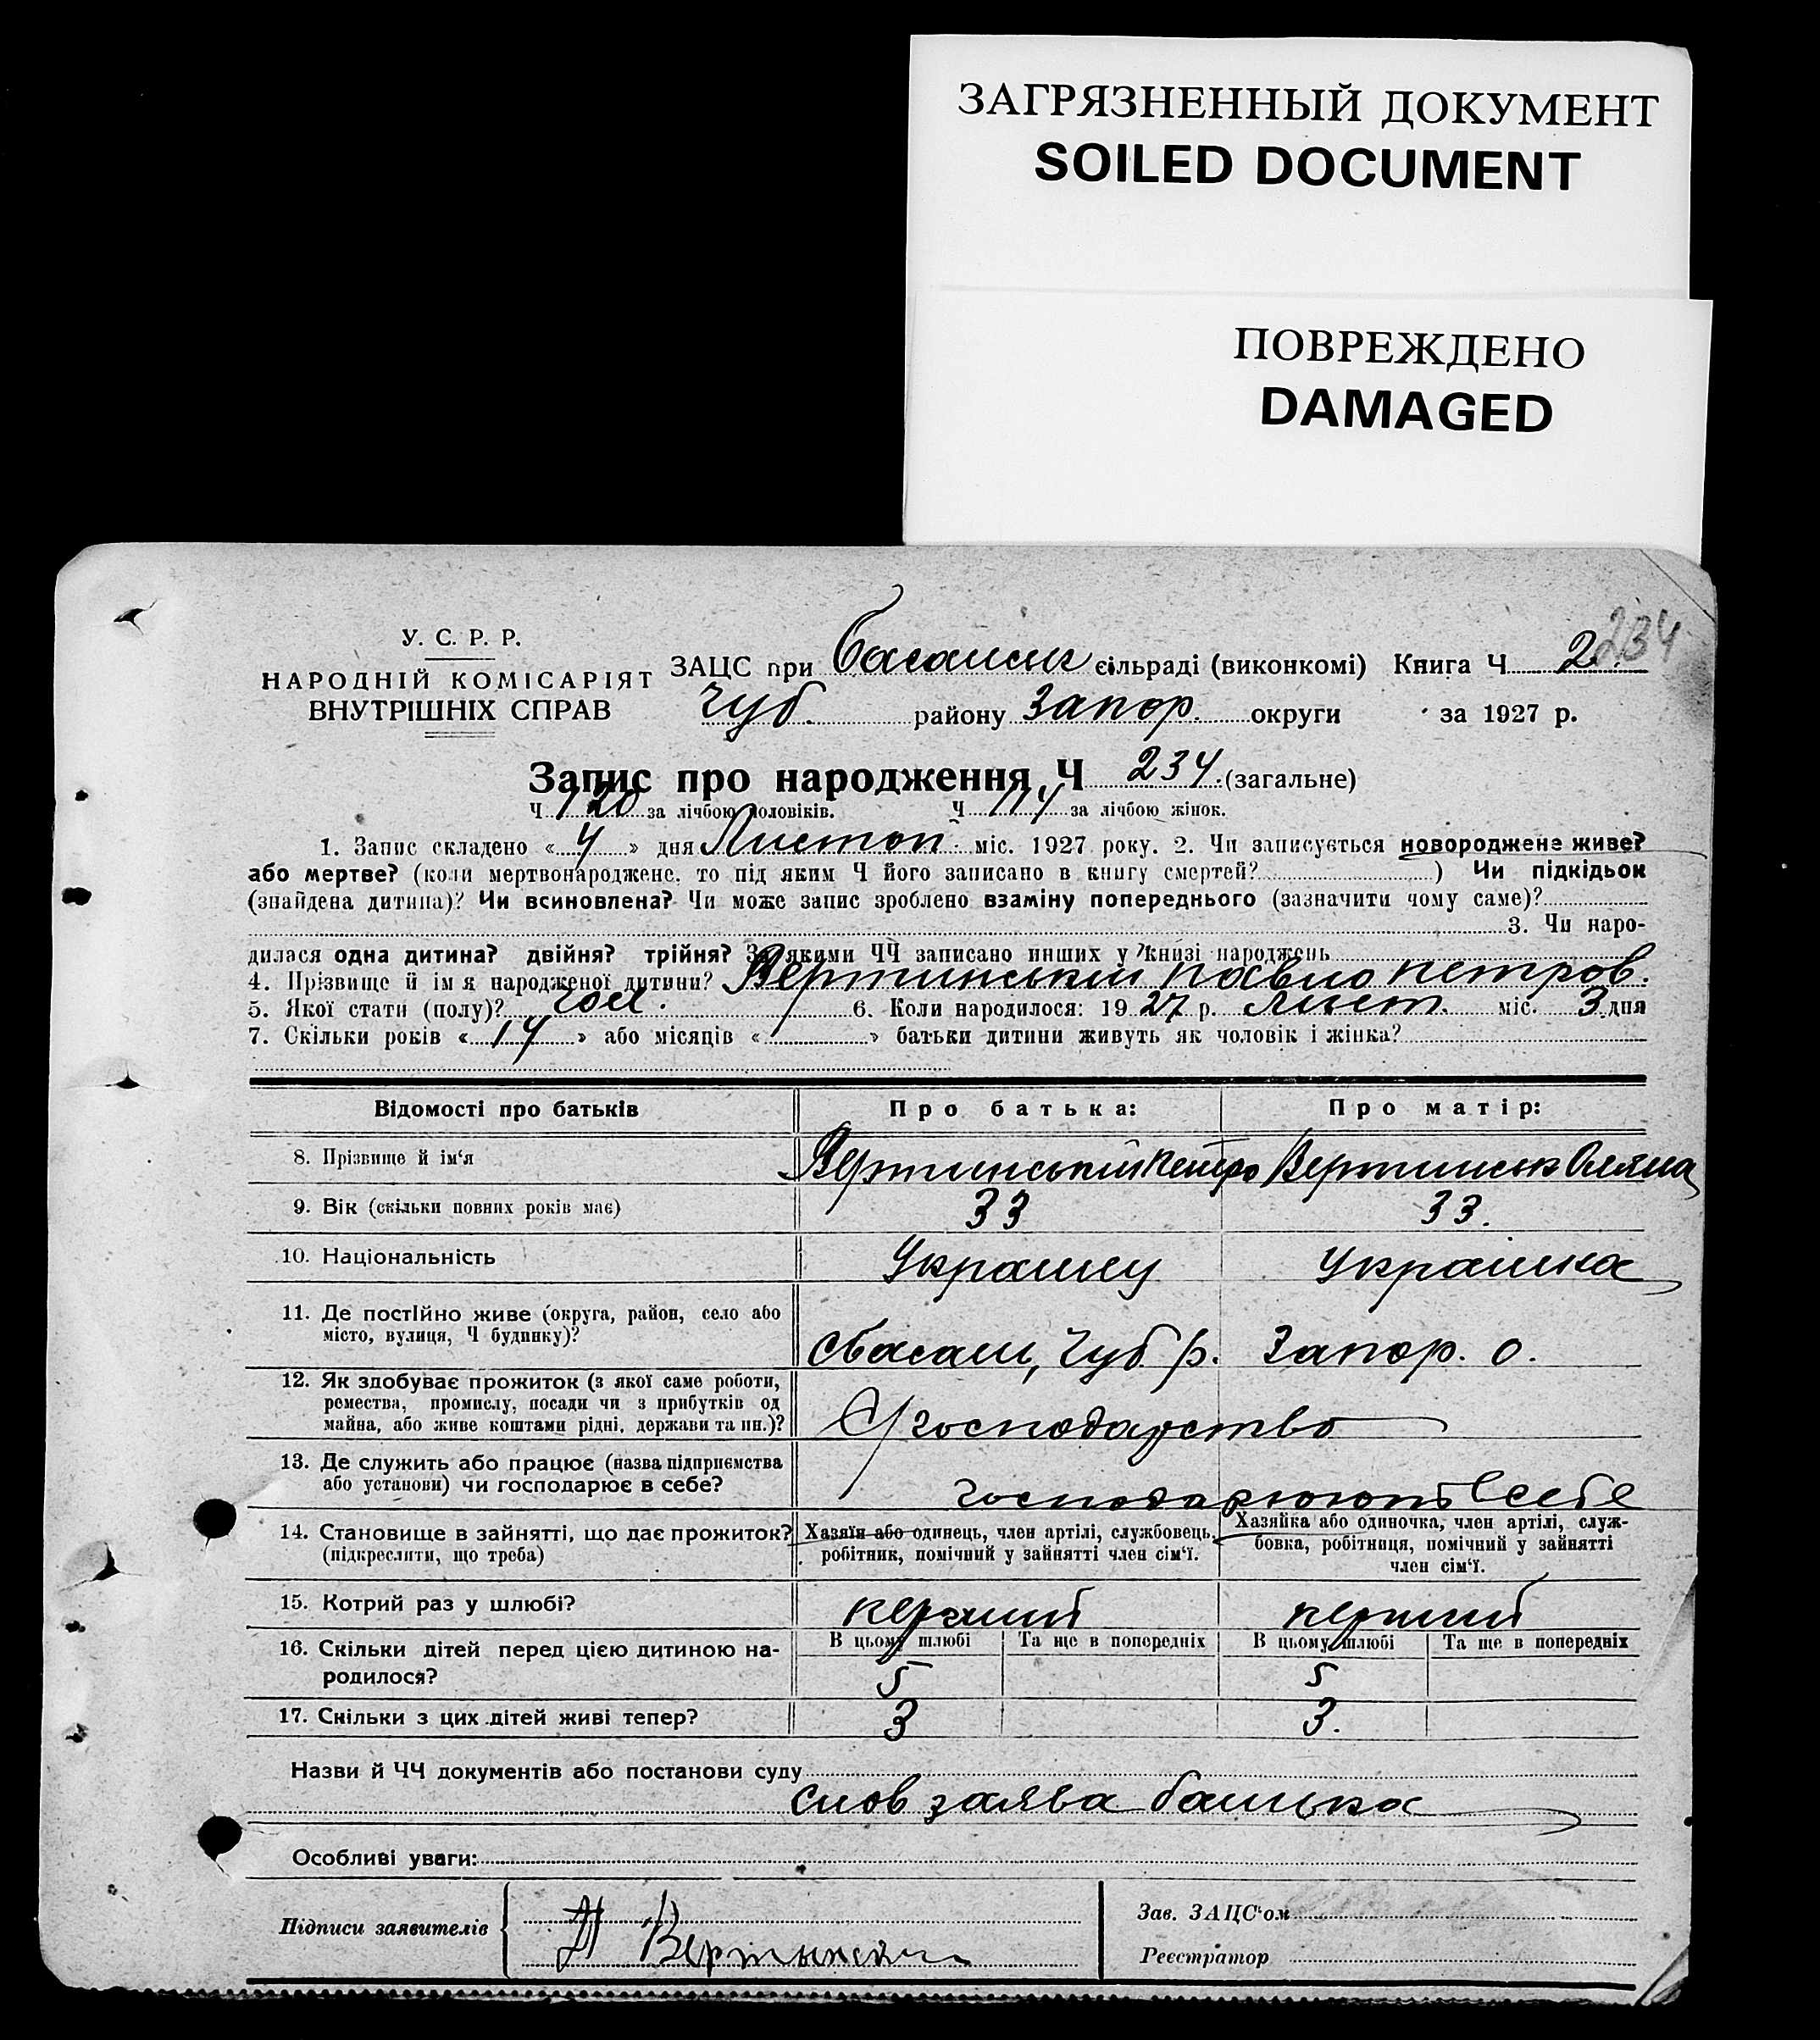 ЗАГРЯЗНЕННЫЙ ДОКУМЕНТ
SOILED DOCUMENT
ПОВРЕЖДЕНО
DAMAGED
234
У. С. Р. Р.
НАРОДНІЙ КОМІСАРІЯТ
ВНУТРІШНІХ СПРАВ
ЗАЦС при Басанськ сільраді (виконкомі) Книга Ч 2
Чуб. району Запор. округи за 1927 р.
Запис про народження Ч 234 (загальне)
Ч 120 за лічбою чоловіків. Ч 114 за лічбою жінок.
1. Запис складено « 4 » дня Листоп міс. 1927 року. 2. Чи записується новороджене живе?
або мертве? (коли мертвонароджене, то під яким Ч його записано в книгу смертей? ) Чи підкідьок
(знайдена дитина)? Чи всиновлена? Чи може запис зроблено взаміну попереднього (зазначити чому саме)?
3. Чи наро-
дилася одна дитина? двійня? трійня? За якими ЧЧ записано инших у книзі народжень
4. Прізвище й ім'я народженої дитини? Вертинський Павло Петров.
5. Якої стати (полу)? чол. 6. Коли народилося: 1927 р. Лист. міс. 3 дня
7. Скільки років « 14 » або місяців « » батьки дитини живуть як чоловік і жінка?
Відомості про батьків Про батька: Про матір:
8. Прізвище й ім'я Вертинський Петро Вертинськ Оляна
9. Вік (скільки повних років має) 33 33.
10. Національність Українец Українка
11. Де постійно живе (округа, район, село або
місто, вулиця, Ч будинку)? с Басань, Чуб р. Запор. о.
12. Як здобуває прожиток (з якої саме роботи,
ремества, промислу, посади чи з прибутків од
майна, або живе коштами рідні, держави та ин.)? господарство
13. Де служить або працює (назва підприємства
або установи) чи господарює в себе? господарюють в себе
14. Становище в зайнятті, що дає прожиток?
(підкреслити, що треба)
Хазяїн або одинець, член артілі, службовець,
робітник, помічний у зайнятті член сім'ї.
Хазяйка або одиночка, член артілі, служ-
бовка, робітниця, помічний у зайнятті
член сім'ї.
15. Котрий раз у шлюбі? перший перший
16. Скільки дітей перед цією дитиною на-
родилося?
В цьому шлюбі Та ще в попередніх В цьому шлюбі Та ще в попередніх
5 5
17. Скільки з цих дітей живі тепер? 3 3.
Назви й ЧЧ документів або постанови суду
слов заява батька
Особливі уваги:
Підписи заявителів
Зав. ЗАЦС'ом
Реєстратор